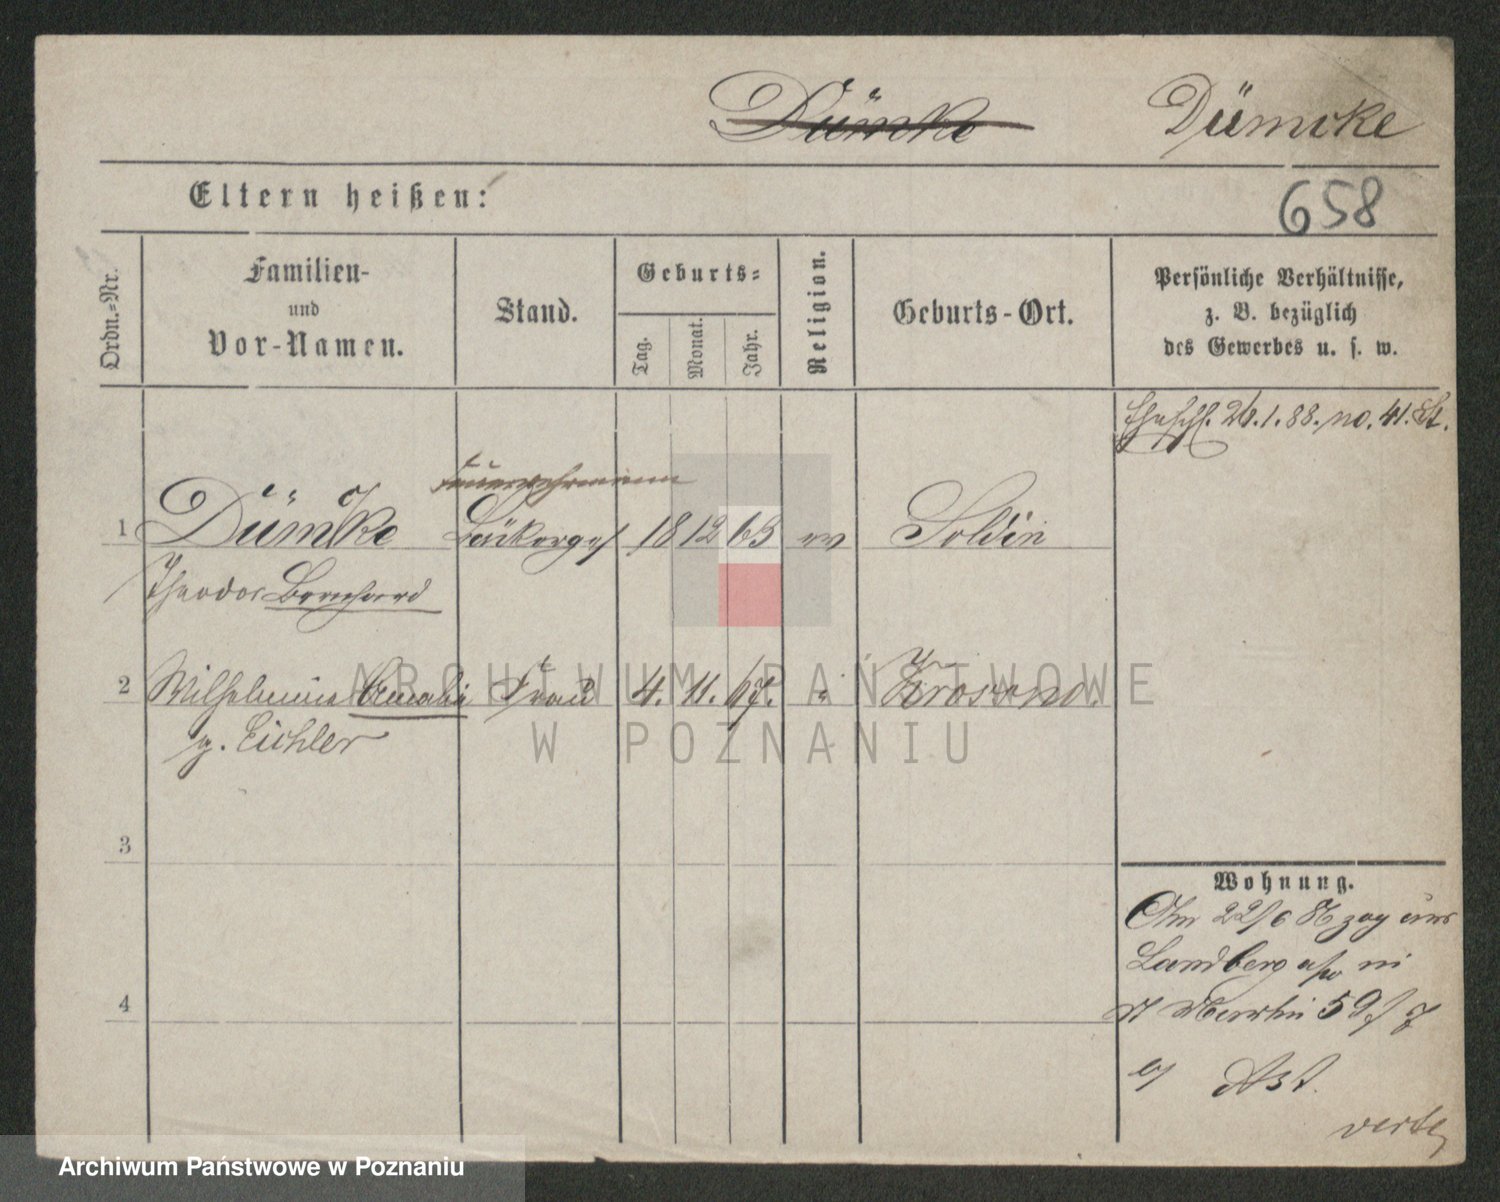 Dümke Dümcke
Eltern heißen:
658
Ordn.-Nr.
Familien-
und
Vor-Namen.
Stand.
Geburts-
Tag.
Monat.
Jahr.
Religion.
Geburts-Ort.
Persönliche Verhältnisse,
z. B. bezüglich
des Gewerbes u. s. w.
Eheschl. 26.1.88. no. 41. St.
Feuerwehrmann
1 Dümcke Bäckerges 18 12 63 ev Soldin
Theodor Bernhard
2 Wilhelmine Amalie Frau 4. 11. 67. "
g. Eichler
3
4
Wohnung.
Am 22/6 86 zog aus
Landberg a/w in
St Martin 59
verte
ARCHIWUM PAŃSTWOWE
W POZNANIU
Archiwum Państwowe w Poznaniu